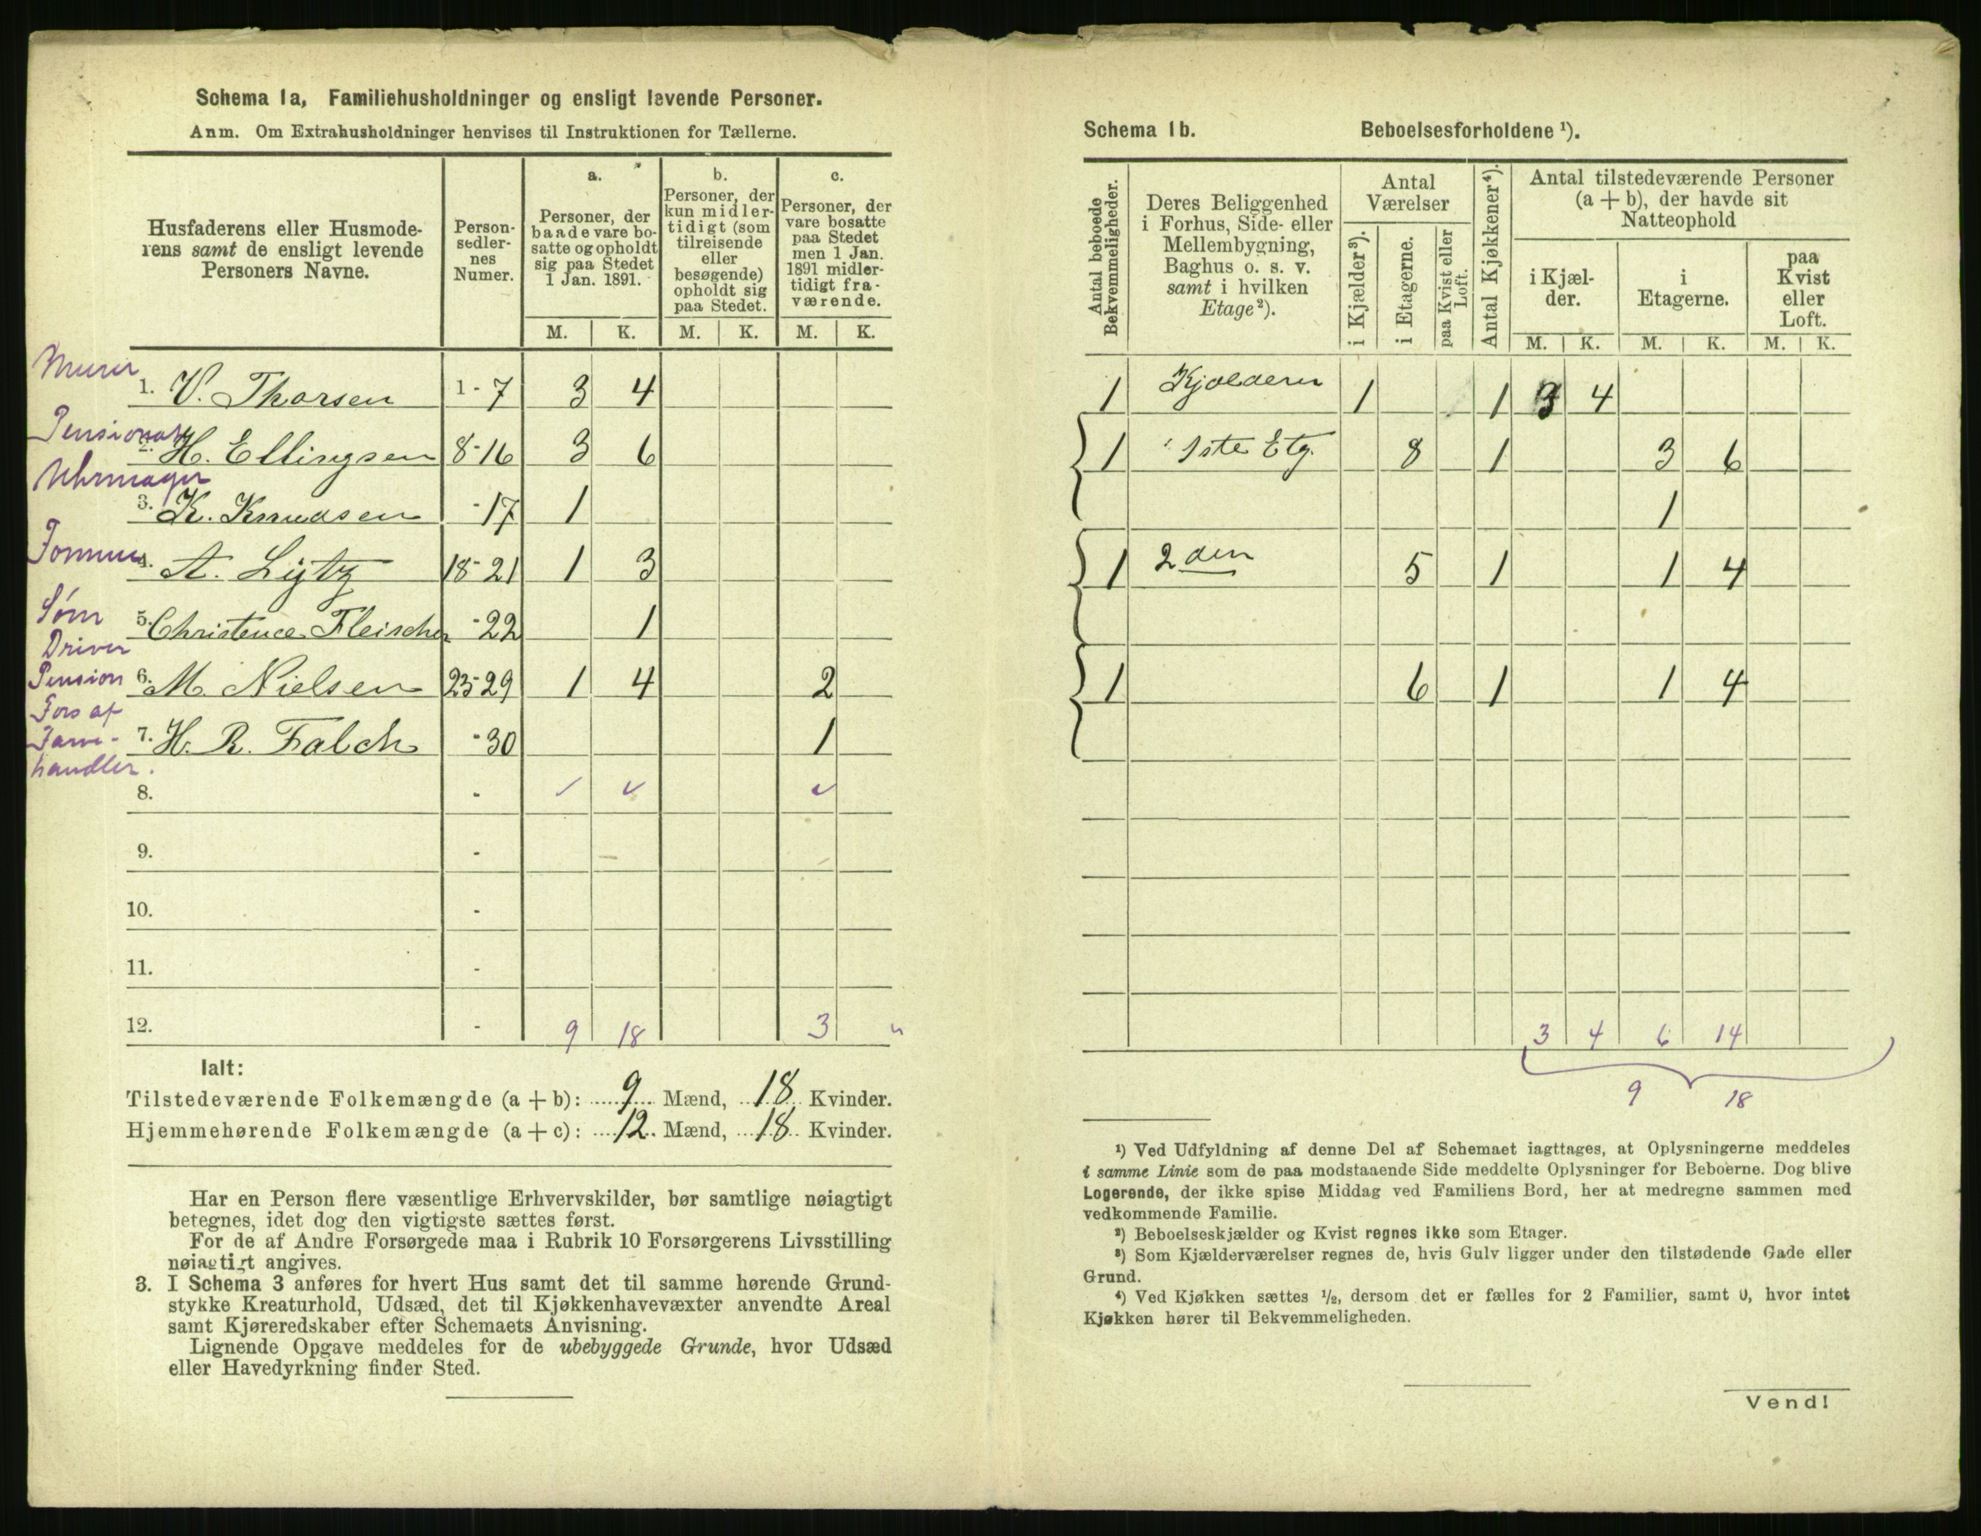 Schema 1a, Familiehusholdninger og ensligt levende Personer.
Anm. Om Extrahusholdninger henvises til Instruktionen for Tællerne.
Husfaderens eller Husmode-
rens samt de ensligt levende
Personers Navne.
Person-
sedler-
nes
Numer.
a.
Personer, der
baade vare bo-
satte og opholdt
sig paa Stedet
1 Jan. 1891.
b.
Personer, der
kun midler-
tidigt (som
tilreisende
eller
besøgende)
opholdt sig
paa Stedet.
c.
Personer, der
vare bosatte
paa Stedet
men 1 Jan.
1891 midler-
tidigt fra-
værende.
M. K. M. K. M. K.
Murer
1. V. Thorsen 1-7 3 4
Pensionat
2. H. Ellingsen 8-16 3 6
Uhrmager
3. K. Knudsen -17 1
4. A. Ligtz 18-21 1 3
5. Christence Fleischer -22 1
Driver
Pension
6. M. Nielsen 23-29 1 4 2
Fors af
Farve-
handler.
7. H. R. Falch -30 1
8. -
9. -
10. -
11. -
12. - 9 18 3
Ialt:
Tilstedeværende Folkemængde (a + b): 9 Mænd, 18 Kvinder.
Hjemmehørende Folkemængde (a + c): 12 Mænd, 18 Kvinder.
Har en Person flere væsentlige Erhvervskilder, bør samtlige nøiagtigt
betegnes, idet dog den vigtigste sættes først.
For de af Andre Forsørgede maa i Rubrik 10 Forsørgerens Livsstilling
nøiagtigt angives.
3. I Schema 3 anføres for hvert Hus samt det til samme hørende Grund-
stykke Kreaturhold, Udsæd, det til Kjøkkenhavevæxter anvendte Areal
samt Kjøreredskaber efter Schemaets Anvisning.
Lignende Opgave meddeles for de ubebyggede Grunde, hvor Udsæd
eller Havedyrkning finder Sted.
Schema 1b. Beboelsesforholdene ¹).
Antal beboede
Bekvemmeligheder.
Deres Beliggenhed
i Forhus, Side- eller
Mellembygning,
Baghus o. s. v.
samt i hvilken
Etage ²).
Antal
Værelser
i Kjælder ³).
i Etagerne.
paa Kvist eller
Loft.
Antal Kjøkkener ⁴).
Antal tilstedeværende Personer
(a + b), der havde sit
Natteophold
i Kjæl-
der.
i
Etagerne.
paa
Kvist
eller
Loft.
M. K. M. K. M. K.
1 Kjælderen 1 1 3 4
1 1ste Etg. 8 1 3 6
1
1 2den 5 1 1 4
1 6 1 1 4
3 4 6 14
9 18
¹) Ved Udfyldning af denne Del af Schemaet iagttages, at Oplysningerne meddeles
i samme Linie som de paa modstaaende Side meddelte Oplysninger for Beboerne. Dog blive
Logerende, der ikke spise Middag ved Familiens Bord, her at medregne sammen med
vedkommende Familie.
²) Beboelseskjælder og Kvist regnes ikke som Etager.
³) Som Kjælderværelser regnes de, hvis Gulv ligger under den tilstødende Gade eller
Grund.
⁴) Ved Kjøkken sættes ½, dersom det er fælles for 2 Familier, samt 0, hvor intet
Kjøkken hører til Bekvemmeligheden.
Vend!